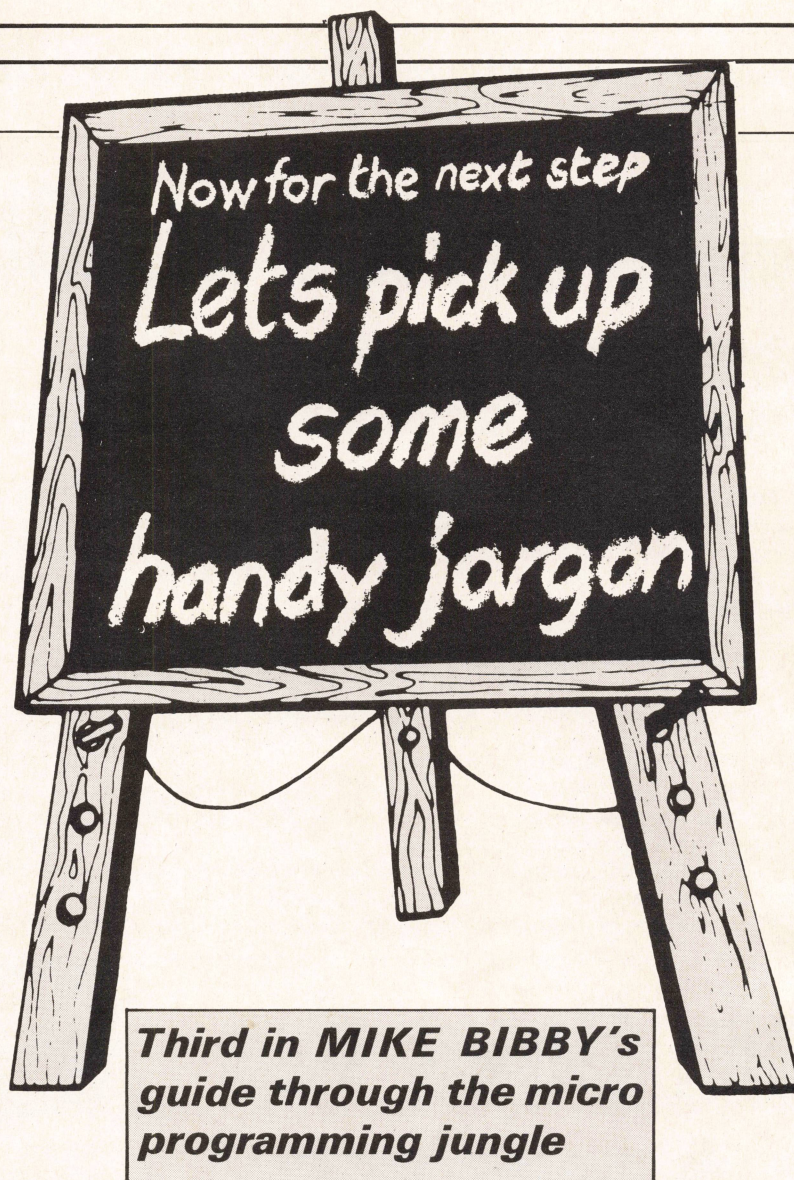 Now for the next step
Lets pick up
some
handy jargon
Third in MIKE BIBBY's
guide through the micro
programming jungle